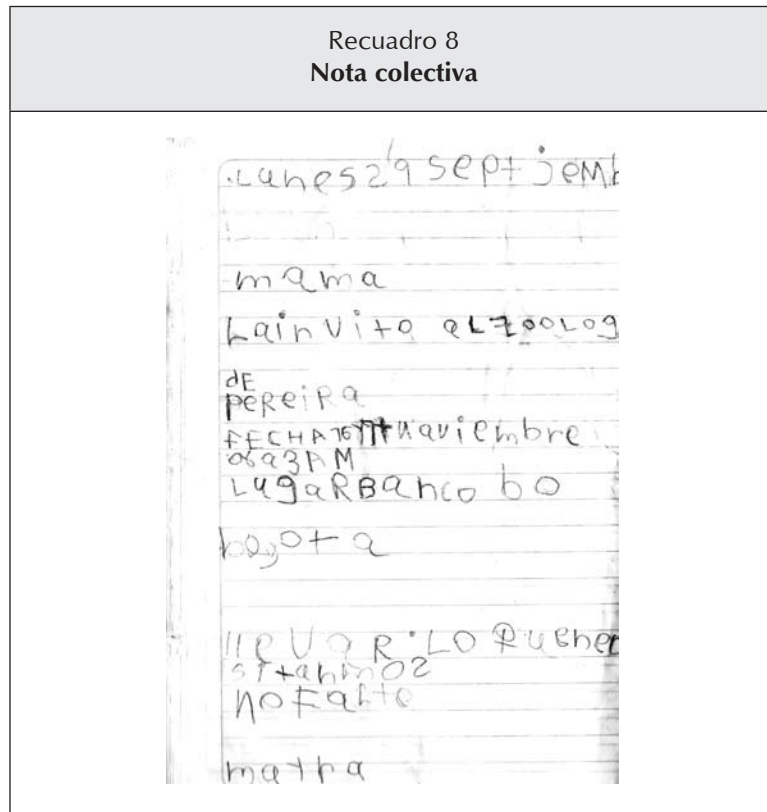 Recuadro 8
Nota colectiva
Lunes 29 septjemb
mama
Lainvito aLzooLog
dE
peReiRa
FECHA 16 naviembre
3AM
LugaRBanco bo
bogota
lleVaR LO Quenec
sitanmos
noFalte
matha